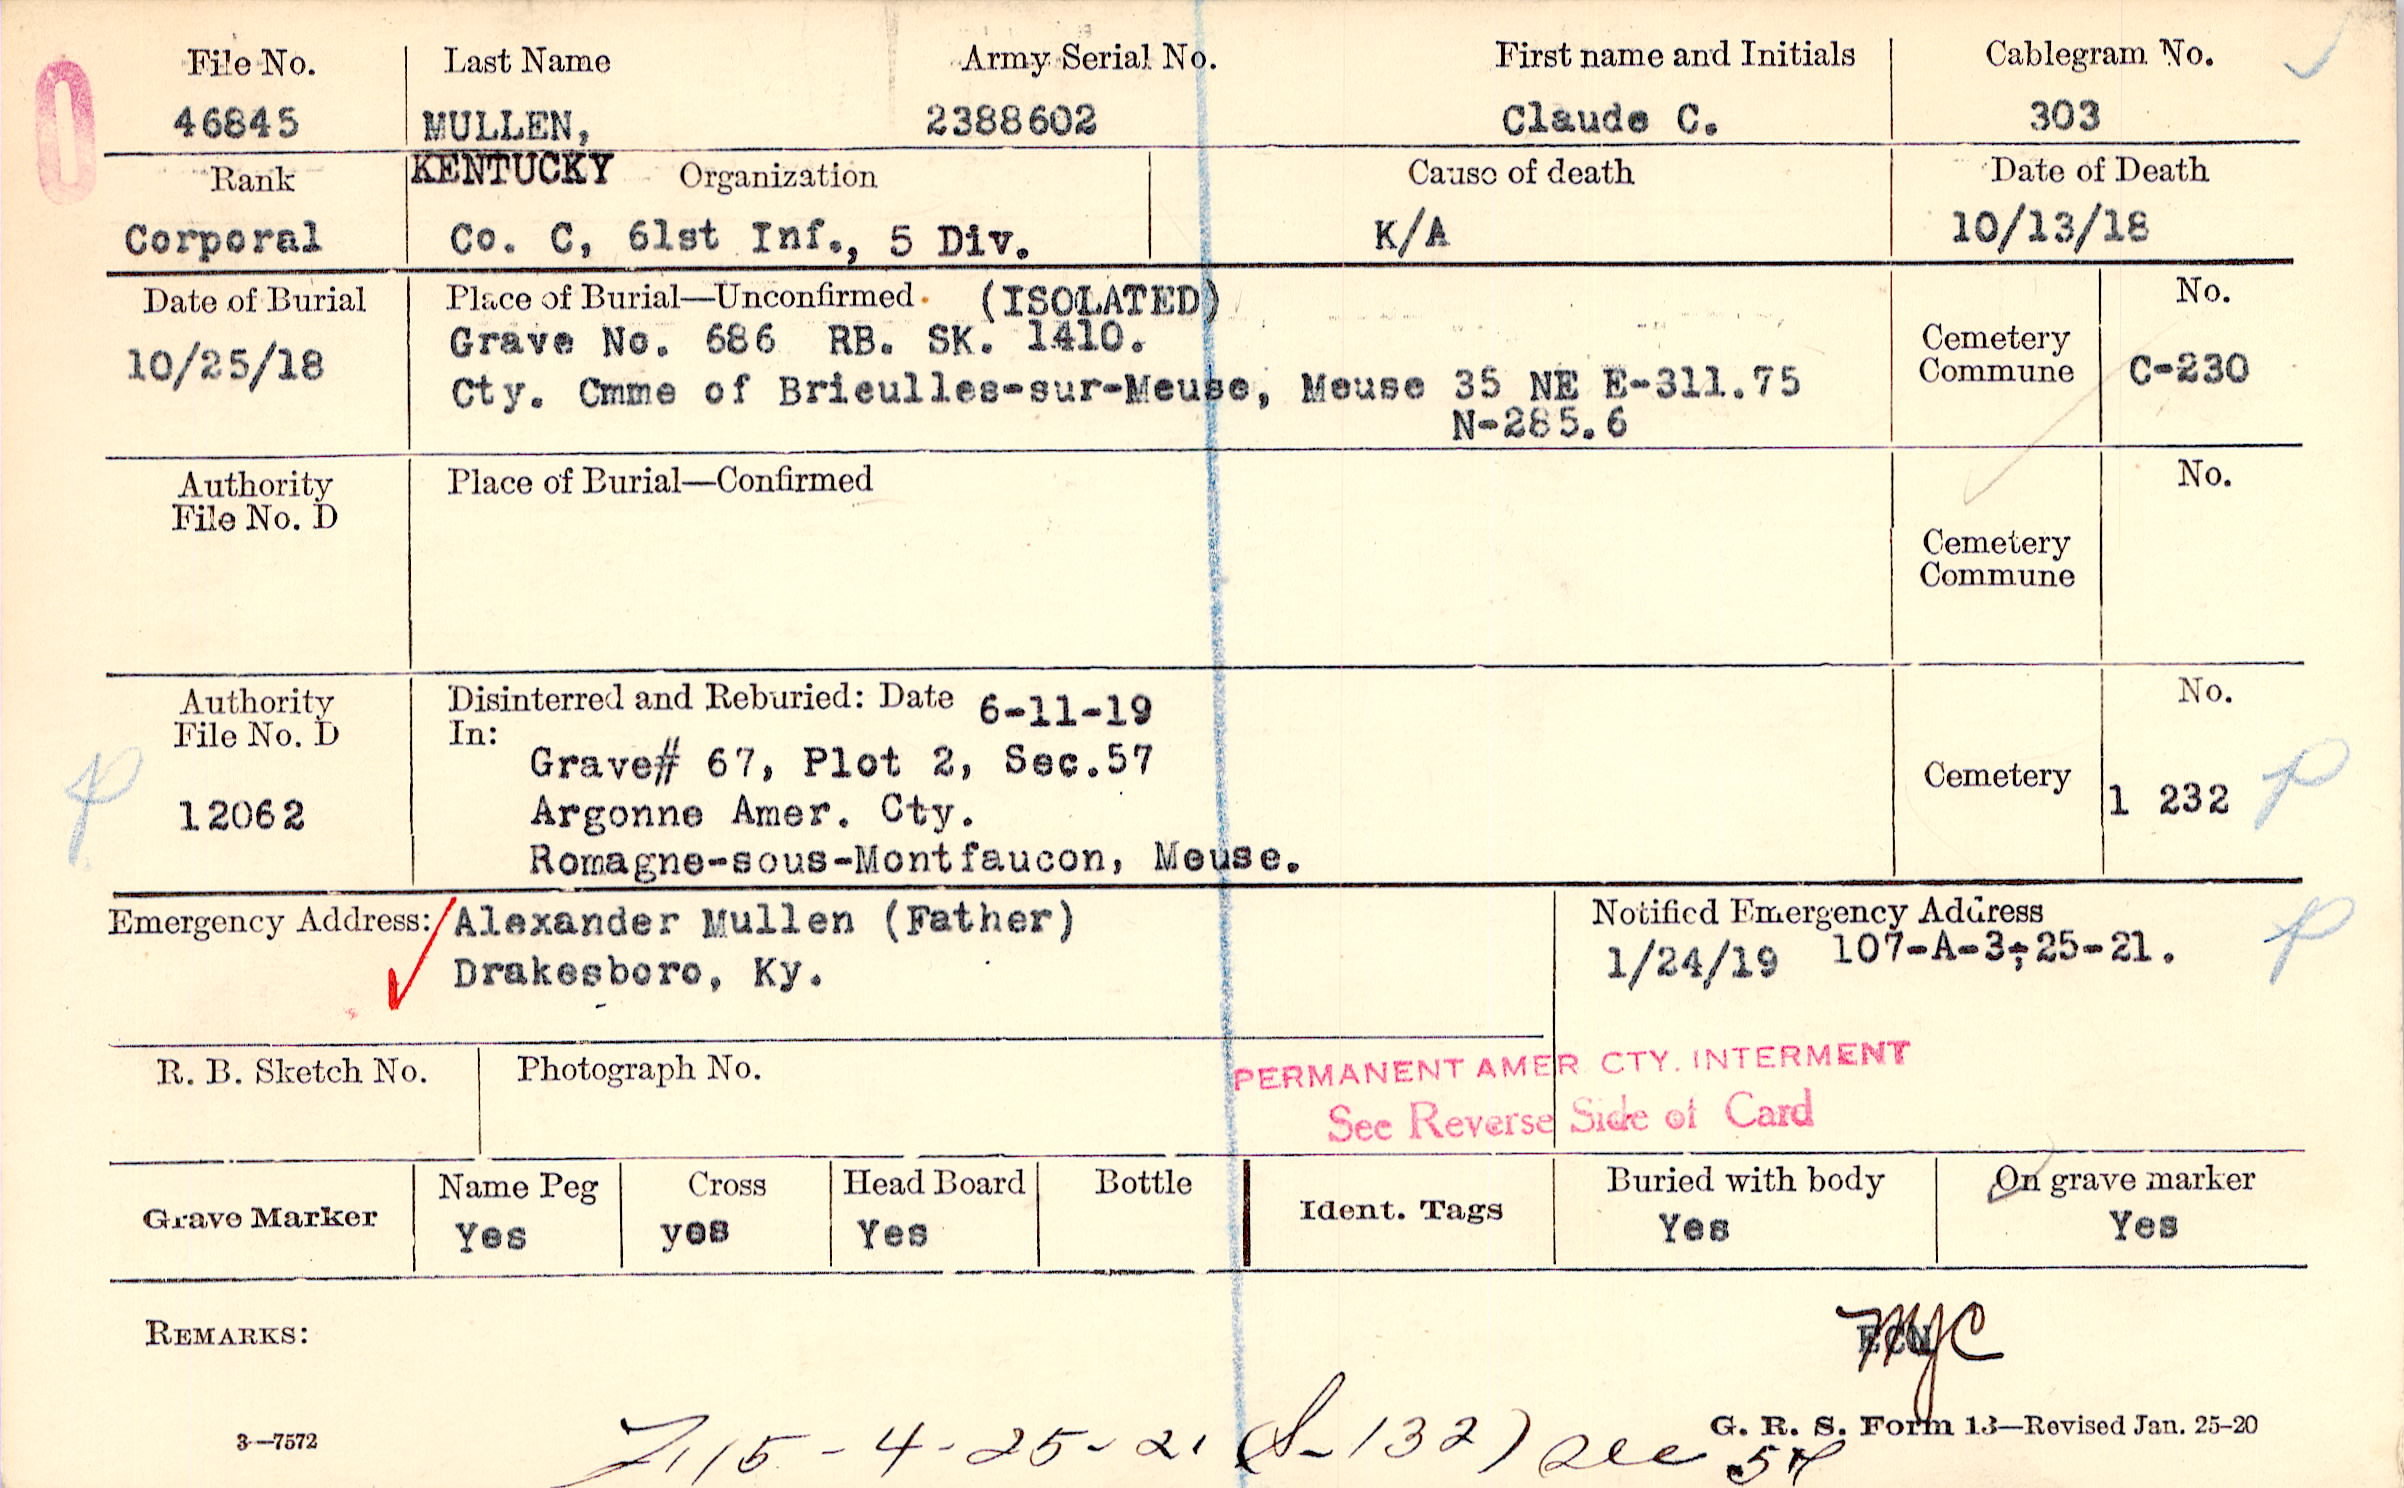 File No. Last Name Army Serial No. First name and Initials Cablegram No.
46845 MULLEN, 2388602 Claude C. 303
Rank KENTUCKY Organization Cause of death Date of Death
Corporal Co. C, 61st Inf., 5 Div. K/A 10/13/18
Date of Burial Place of Burial—Unconfirmed (ISOLATED) No.
10/25/18 Grave No. 686 RB. SK. 1410. Cemetery
Cty. Cmme of Brieulles-sur-Meuse, Meuse 35 NE E-311.75 Commune C-230
N-285.6
Authority Place of Burial—Confirmed No.
File No. D
Cemetery
Commune
Authority Disinterred and Reburied: Date 6-11-19 No.
File No. D In:
Grave# 67, Plot 2, Sec.57 Cemetery
12062 Argonne Amer. Cty. 1 232
Romagne-sous-Montfaucon, Meuse.
Emergency Address: Alexander Mullen (Father) Notified Emergency Address
Drakesboro, Ky. 1/24/19 107-A-3-25-21.
R. B. Sketch No. Photograph No. PERMANENT AMER CTY. INTERMENT
See Reverse Side of Card
Grave Marker Name Peg Cross Head Board Bottle Ident. Tags Buried with body On grave marker
Yes yes Yes Yes Yes
REMARKS:
3—7572 G. R. S. Form 13—Revised Jan. 25-20
115-4-25-21 (S-132) see 57